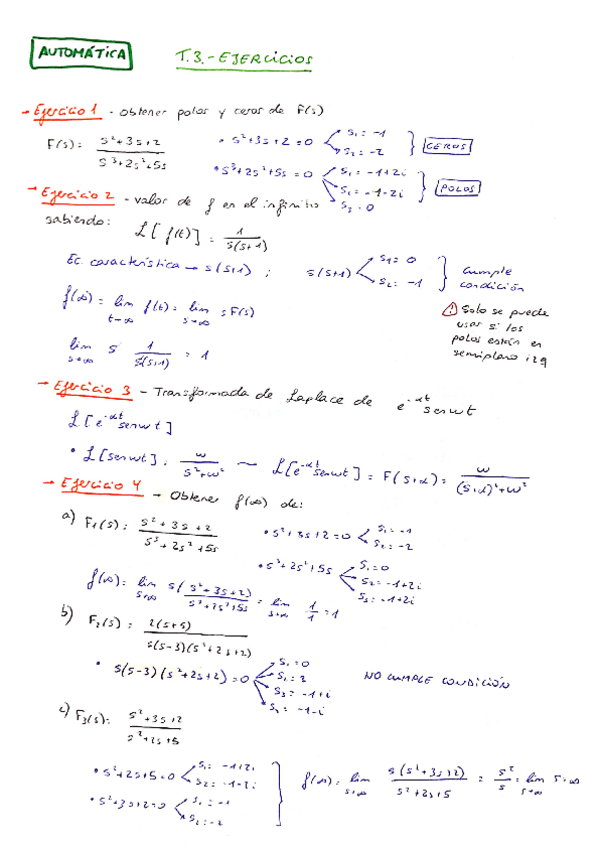 AUTOMÁTICA
T.3.- EJERCICIOS
→ Ejercicio 1 - Obtener polos y ceros de F(s)
F(s): s²+3s+2 / s³+2s²+5s
• s²+3s+2=0 s₁=-1 s₂=-2 } CEROS
• s³+2s²+5s=0 s₁=-1+2i s₁=-1-2i s₃=0 } POLOS
→ Ejercicio 2 - valor de f en el infinito
sabiendo: L[f(t)] = 1 / s(s+1)
Ec. característica → s(s+1) ; s(s+1) s₁=0 s₂=-1 } cumple condición
f(∞)= lim t→∞ f(t)= lim s→∞ sF(s)
! Solo se puede
usar si los
polos están en
semiplano izq
lim s→∞ s 1 / s(s+1) = 1
→ Ejercicio 3 - Transformada de Laplace de e^-αt senwt
L[e^-αt senwt]
• L[senwt]: w / s²+w² ~ L[e^-αt senwt] = F(s+α) = w / (s+α)²+w²
→ Ejercicio 4 → Obtener f(∞) de:
a) F₁(s): s²+3s+2 / s³+2s²+5s
• s²+3s+2=0 s₁=-1 s₂=-2
• s³+2s²+5s s₁=0 s₂=-1+2i s₃=-1+2i
f(∞)= lim s→∞ s(s²+3s+2) / s³+2s²+5s = lim s→∞ 1/1 = 1
b) F₂(s): 2(s+5) / s(s-3)(s²+2s+2)
• s(s-3)(s²+2s+2)=0 s₁=0 s₂=3 s₃=-1+i s₄=-1-i
NO CUMPLE CONDICIÓN
c) F₃(s): s²+3s+2 / s²+2s+5
• s²+2s+5=0 s₁=-1+2i s₂=-1-2i
• s²+3s+2=0 s₁=-1 s₂=-2
f(∞)= lim s→∞ s(s²+3s+2) / s²+2s+5 = s²/s = lim s→∞ s=∞